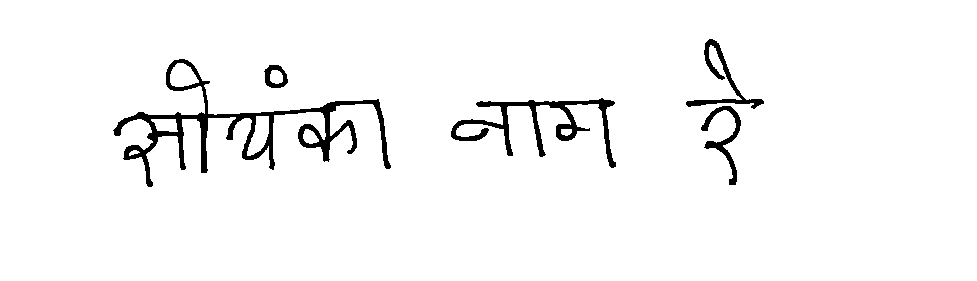 सीयंका नाम रे